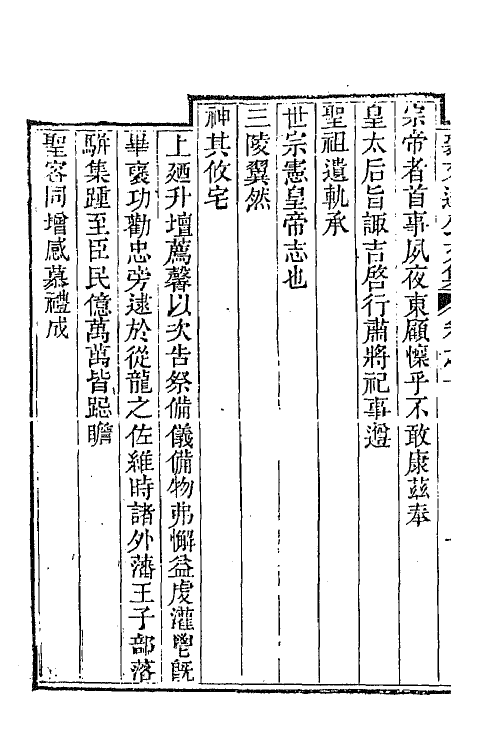 宗帝者首事夙夜東顧懍乎不敢康茲奉
皇太后旨諏吉啓行肅將祀事遵
聖祖遺軌承
世宗憲皇帝志也
三陵翼然
神其攸宅
上廼升壇薦馨以次告祭備儀備物弗懈益虔灌鬯旣
畢襃功勸忠旁逮於從龍之佐維時諸外藩王子部落
駢集踵至臣民億萬萬皆跽瞻
聖容同增感慕禮成